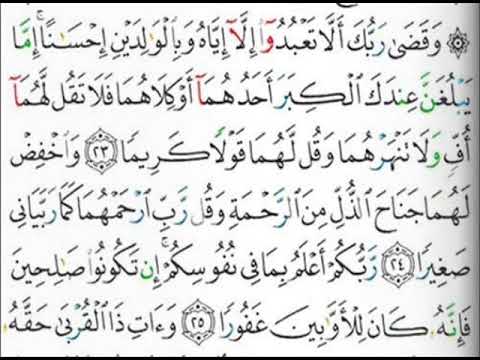 ۞ وَقَضَىٰ رَبُّكَ أَلَّا تَعْبُدُوٓا۟ إِلَّآ إِيَّاهُ وَبِٱلْوَٰلِدَيْنِ إِحْسَـٰنًا ۚ إِمَّا
يَبْلُغَنَّ عِندَكَ ٱلْكِبَرَ أَحَدُهُمَآ أَوْ كِلَاهُمَا فَلَا تَقُل لَّهُمَآ
أُفٍّ وَلَا تَنْهَرْهُمَا وَقُل لَّهُمَا قَوْلًا كَرِيمًا ٢٣ وَٱخْفِضْ
لَهُمَا جَنَاحَ ٱلذُّلِّ مِنَ ٱلرَّحْمَةِ وَقُل رَّبِّ ٱرْحَمْهُمَا كَمَا رَبَّيَانِى
صَغِيرًا ٢٤ رَّبُّكُمْ أَعْلَمُ بِمَا فِى نُفُوسِكُمْ ۚ إِن تَكُونُوا۟ صَـٰلِحِينَ
فَإِنَّهُۥ كَانَ لِلْأَوَّٰبِينَ غَفُورًا ٢٥ وَءَاتِ ذَا ٱلْقُرْبَىٰ حَقَّهُۥ